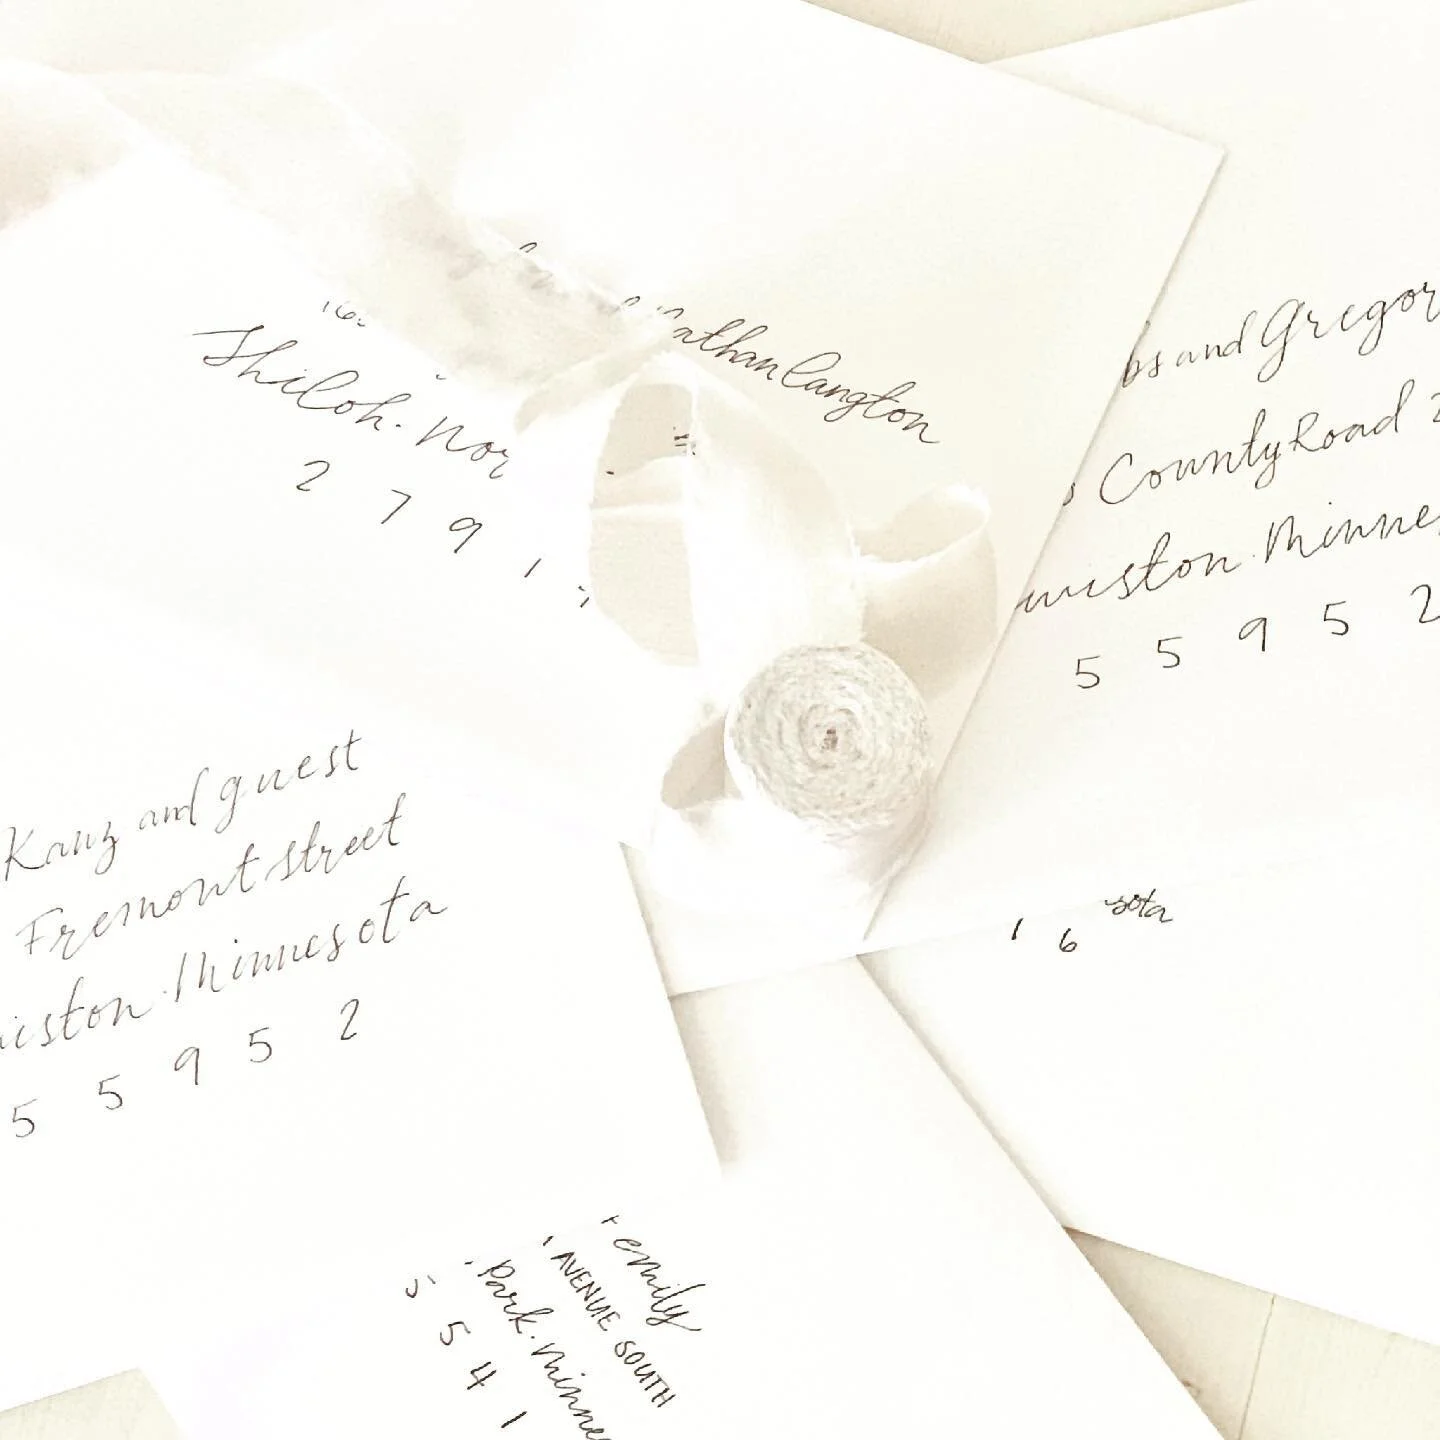 Nathan Langton
Shiloh. Nor
2 7 9 1
bs and Gregor
County Road 2
wiston. Minnes
5 5 9 5 2
Kanz and guest
Fremont Street
iston. Minnesota
5 5 9 5 2
sota
1 6
emily
AVENUE SOUTH
Park. Minne
5 5 4 1